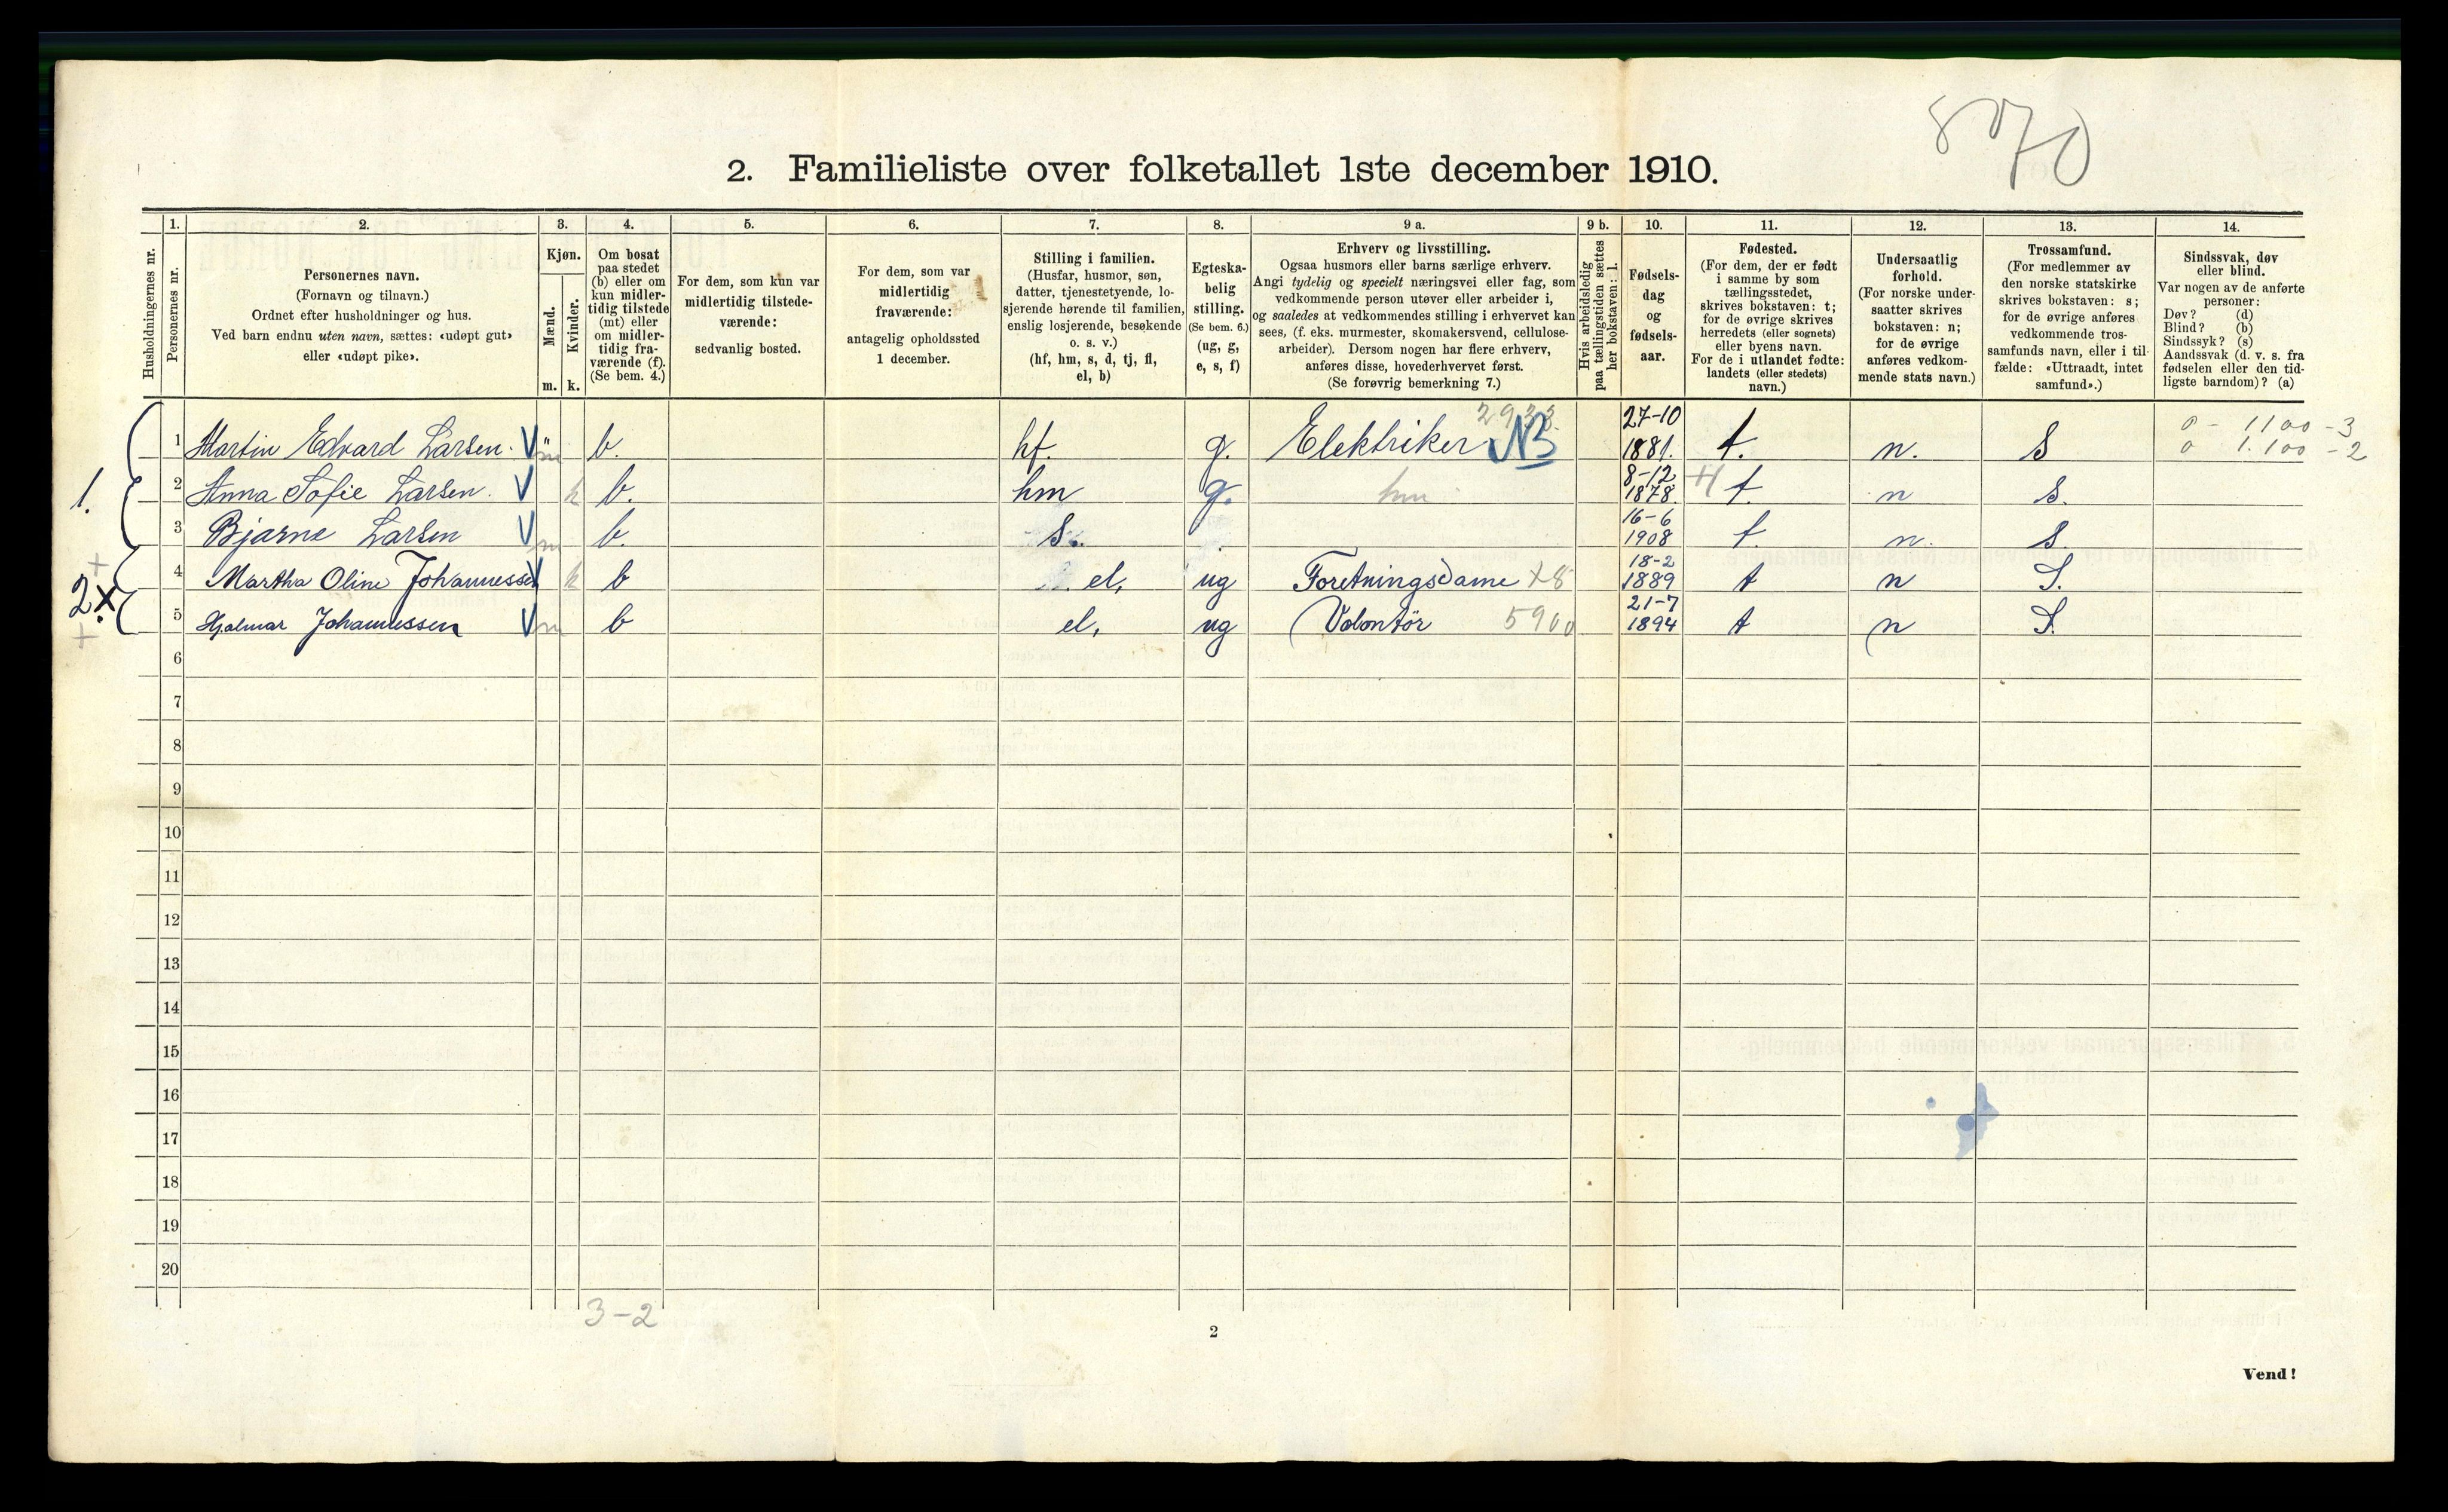 870
2. Familieliste over folketallet 1ste december 1910.
Husholdningernes nr.
1.
Personernes nr.
2.
Personernes navn.
(Fornavn og tilnavn.)
Ordnet efter husholdninger og hus.
Ved barn endnu uten navn, sættes: «udøpt gut»
eller «udøpt pike».
3.
Kjøn.
Mænd.
Kvinder.
m. k.
4.
Om bosat
paa stedet
(b) eller om
kun midler-
tidig tilstede
(mt) eller
om midler-
tidig fra-
værende (f).
(Se bem. 4.)
5.
For dem, som kun var
midlertidig tilstede-
værende:
sedvanlig bosted.
6.
For dem, som var
midlertidig
fraværende:
antagelig opholdssted
1 december.
7.
Stilling i familien.
(Husfar, husmor, søn,
datter, tjenestetyende, lo-
sjerende hørende til familien,
enslig losjerende, besøkende
o. s. v.)
(hf, hm, s, d, tj, fl,
el, b)
8.
Egteska-
belig
stilling.
(Se bem. 6.)
(ug, g,
e, s, f)
9 a.
Erhverv og livsstilling.
Ogsaa husmors eller barns særlige erhverv.
Angi tydelig og specielt næringsvei eller fag, som
vedkommende person utøver eller arbeider i,
og saaledes at vedkommendes stilling i erhvervet kan
sees, (f. eks. murmester, skomakersvend, cellulose-
arbeider). Dersom nogen har flere erhverv,
anføres disse, hovederhvervet først.
(Se forøvrig bemerkning 7.)
9 b.
Hvis arbeidsledig
paa tællingstiden sættes
her bokstaven: l.
10.
Fødsels-
dag
og
fødsels-
aar.
11.
Fødested.
(For dem, der er født
i samme by som
tællingsstedet,
skrives bokstaven: t;
for de øvrige skrives
herredets (eller sognets)
eller byens navn.
For de i utlandet fødte:
landets (eller stedets)
navn.)
12.
Undersaatlig
forhold.
(For norske under-
saatter skrives
bokstaven: n;
for de øvrige
anføres vedkom-
mende stats navn.)
13.
Trossamfund.
(For medlemmer av
den norske statskirke
skrives bokstaven: s;
for de øvrige anføres
vedkommende tros-
samfunds navn, eller i til-
fælde: «Uttraadt, intet
samfund».)
14.
Sindssvak, døv
eller blind.
Var nogen av de anførte
personer:
Døv? (d)
Blind? (b)
Sindssyk? (s)
Aandssvak (d. v. s. fra
fødselen eller den tid-
ligste barndom)? (a)
1. 1 Martin Edvard Larsen. V m b. hf. g. Elektriker NB 27-10 1881. t. n. S 0 - 1100 - 3
0 1.100 - 2
2 Anna Sofie Larsen. V k b. hm g. hm 8-12 1878. t. n s.
3 Bjarne Larsen V m b. s. 16-6 1908 t. n. s.
2. X 4 Martha Oline Johannessen V k b el, ug Foretningsdame X8 18-2 1889 t n S.
5 Hjalmar Johannessen V m b el, ug Volontör 5900 21-7 1894 t n S.
6
7
8
9
10
11
12
13
14
15
16
17
18
19
20
3-2
2
Vend!